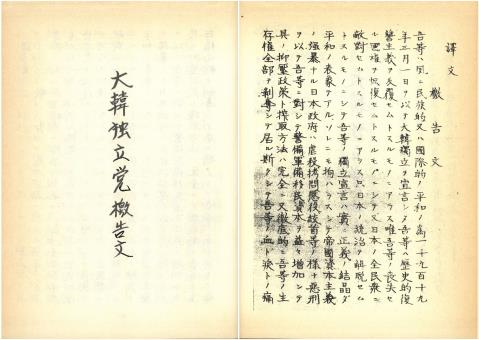 大韓独立党檄告文
譯文
檄告文
吾等ハ夙ニ民族的又ハ國際的平和ノ為一千九百十九
年三月一日ヲ以テ大韓獨立ヲ宣言シタ吾等ハ歴史的復
讐主義ヲ反覆セムトスルモノニアラス唯吾等ノ喪失セ
ル國権ヲ恢復セムトスルモノニシテ又日本ノ全民衆ニ
敵對セムトスルモノニアラス只日本ノ統治ヲ離脱セム
トスルモノニシテ吾等ノ獨立宣言ハ實ニ正義ノ結晶ダ
平和ノ表象デアルソレニモ拘ハラスシテ帝國資本主義
ノ强暴ナル日本政府ハ虐殺拷問懲役絞首等ノ様ナ悪刑
ヲ以テ吾等ニ對シテ警備軍備移民資本ヲ益々増加シテ
其ノ抑壓政策ト搾取方法ハ完全ニ又徹底的ニ吾等ノ生
存権全部ヲ剥奪シテ居ル斯クシテ吾等ノ血ト涙トノ痛